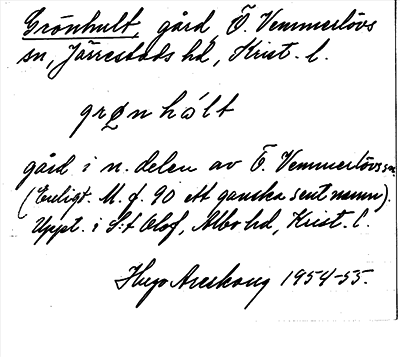 Grönhult, gård, Ö. Vemmerlövs
sn, Järrestads hd, Krist. l.
grønhɷ́lt
gård i n. delen av Ö. Vemmerlövs sn.
(Enligt. M. f. 90 ett ganska sent namn).
Uppt. i S:t Olof, Albo hd, Krist. l.
Hugo Areskoug 1954-55.